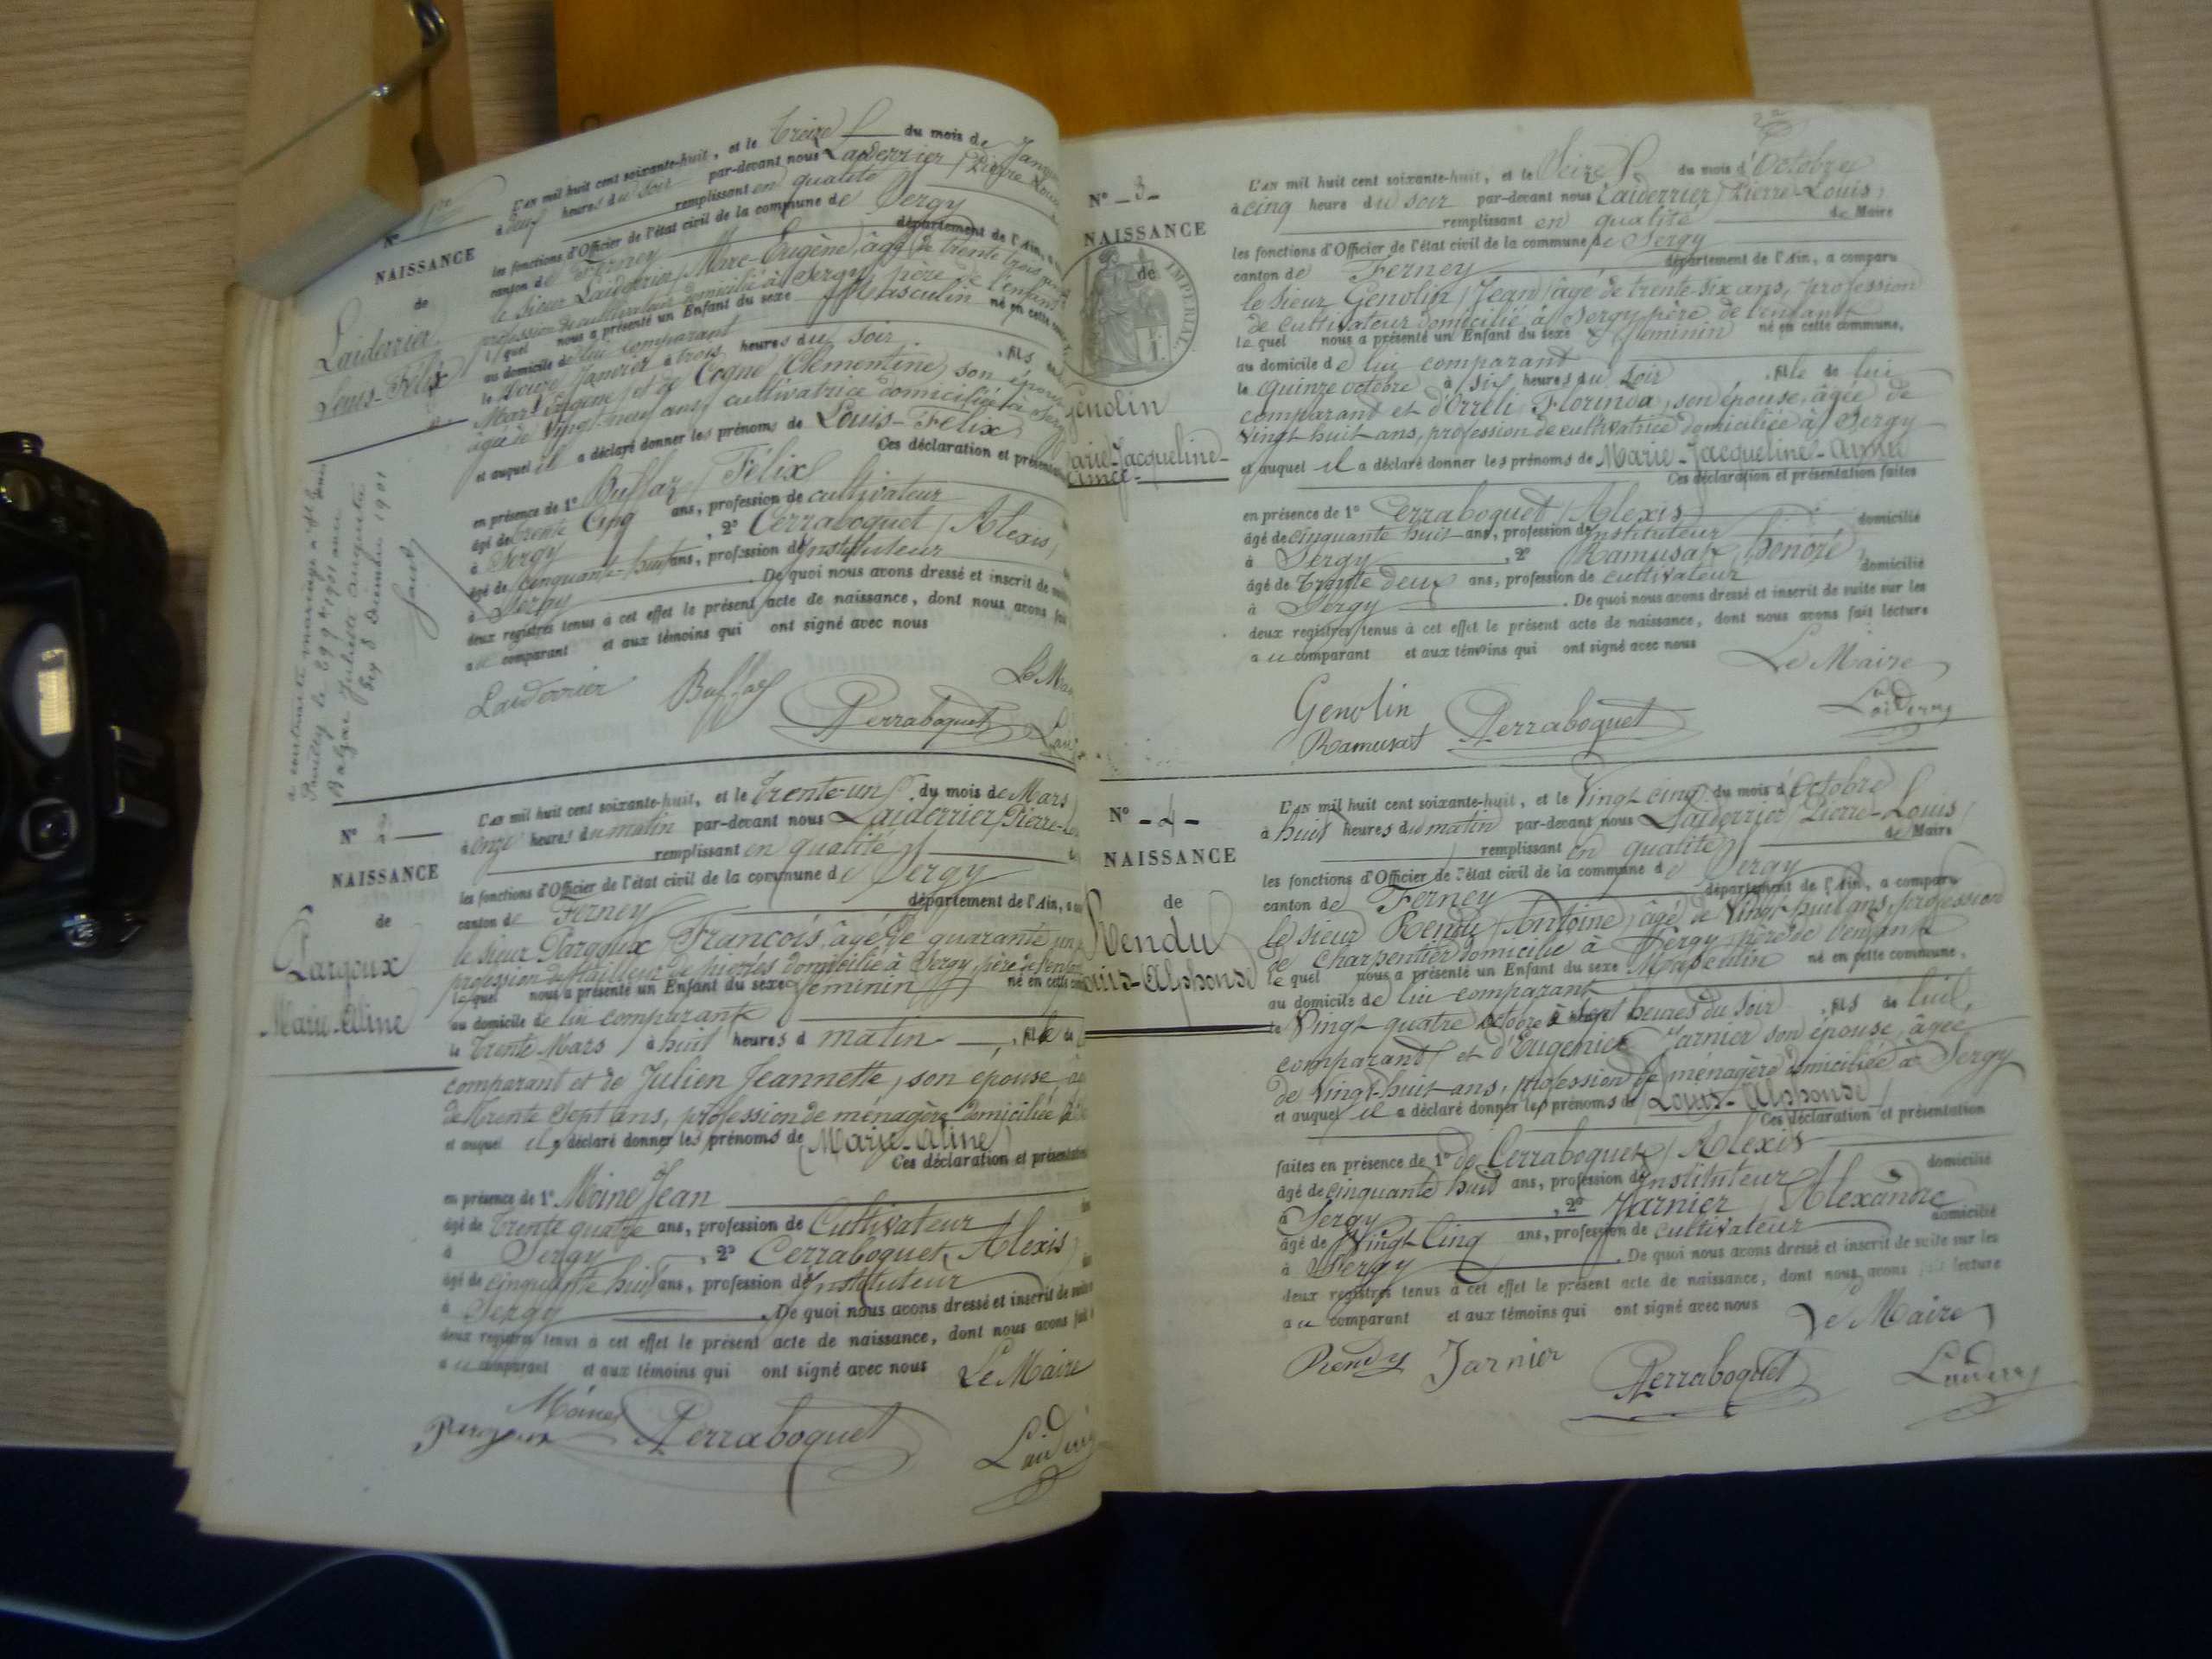 N° 1re
NAISSANCE
de
Laiderrier
Louis-Félix
a contracté mariage à St Denis
le 29 9bre 1901 avec
Balzac Juliette
Gex 8 Décembre 1901
L'an mil huit cent soixante-huit, et le treize du mois de Janvier
à neuf heures du soir par-devant nous Laiderrier Pierre Louis
remplissant en qualité
les fonctions d'Officier de l'état civil de la commune de Sergy
canton de Ferney département de l'Ain, a
le sieur Laiderrier Marc-Eugène, âgé de trente trois
profession de cultivateur domicilié à Sergy, père de l'enfant
lequel nous a présenté un Enfant du sexe Masculin né en cette
au domicile de lui comparant
le douze Janvier à trois heures du soir, fils
Marc Eugène et de Cogne Clémentine, son épouse
âgée de vingt-neuf ans, cultivatrice domiciliée à Sergy
et auquel il a déclaré donner les prénoms de Louis-Félix
Ces déclaration et présentation
en présence de 1° Buffaz Félix
âgé de trente cinq ans, profession de cultivateur
à Sergy, 2° Perraboquet Alexis
âgé de cinquante-huit ans, profession d'Instituteur
à Sergy. De quoi nous avons dressé et inscrit de suite
deux registres tenus à cet effet le présent acte de naissance, dont nous avons fait
au comparant et aux témoins qui ont signé avec nous
Le Ma
Laiderrier Buffaz Perraboquet Lai
N° 2
NAISSANCE
de
Pargoux
Marie-Aline
L'an mil huit cent soixante-huit, et le trente-un du mois de Mars
à onze heures du matin par-devant nous Laiderrier Pierre-Lo
remplissant en qualité
les fonctions d'Officier de l'état civil de la commune de Sergy
canton de Ferney département de l'Ain, a
le sieur Pargoux François, âgé de quarante un
profession de tailleur de pierres domicilié à Sergy, père de l'enfant
lequel nous a présenté un Enfant du sexe féminin né en cette
au domicile de lui comparant
le trente Mars à huit heures d matin, fille de
comparant et de Julien Jeannette, son épouse, âg
de trente sept ans, profession de ménagère domiciliée à
et auquel il a déclaré donner les prénoms de Marie-Aline
Ces déclaration et présentation
en présence de 1° Moine Jean
âgé de trente quatre ans, profession de Cultivateur
à Sergy, 2° Perraboquet Alexis
âgé de cinquante huit ans, profession d'Instituteur
à Sergy. De quoi nous avons dressé et inscrit de suite
deux registres tenus à cet effet le présent acte de naissance, dont nous avons fait
au comparant et aux témoins qui ont signé avec nous Le Maire
Pargoux Moine Perraboquet Laiderri
N° -3-
NAISSANCE
de
IMPÉRIAL
Genolin
arie-Jacqueline-
Aimée-
L'an mil huit cent soixante-huit, et le Seize du mois d'Octobre
à cinq heure du soir par-devant nous Laiderrier Pierre-Louis
remplissant en qualité de Maire
les fonctions d'Officier de l'état civil de la commune de Sergy
canton de Ferney département de l'Ain, a comparu
le sieur Genolin Jean âgé de trente-six ans, profession
de cultivateur domicilié à Sergy père de l'enfant
lequel nous a présenté un Enfant du sexe féminin né en cette commune,
au domicile de lui comparant
le quinze octobre à six heures du soir, fille de lui
comparant et d'Orreli Florinda, son épouse, âgée de
vingt huit ans, profession de cultivatrice domiciliée à Sergy
et auquel il a déclaré donner les prénoms de Marie-Jacqueline-Aimée
Ces déclaration et présentation faites
en présence de 1° Perraboquet Alexis
âgé de cinquante huit ans, profession d'Instituteur domicilié
à Sergy, 2° Ramusat, honoré
âgé de trente deux ans, profession de cultivateur domicilié
à Sergy. De quoi nous avons dressé et inscrit de suite sur les
deux registres tenus à cet effet le présent acte de naissance, dont nous avons fait lecture
au comparant et aux témoins qui ont signé avec nous
Le Maire
Genolin
Ramusat Perraboquet Laiderrier
N° -4-
NAISSANCE
de
Rendu
ouis-Alphonse
L'an mil huit cent soixante-huit, et le vingt cinq du mois d'Octobre
à huit heures du matin par-devant nous Laiderrier Pierre-Louis
remplissant en qualité de Maire
les fonctions d'Officier de l'état civil de la commune de Sergy
canton de Ferney département de l'Ain, a comparu
le sieur Rendu Antoine, âgé de vingt huit ans, profession
de charpentier domicilié à Sergy, père de l'enfant
lequel nous a présenté un Enfant du sexe Masculin né en cette commune,
au domicile de lui comparant
le vingt quatre octobre à sept heures du soir, fils de lui
comparant et d'Eugénie Jarnier son épouse, âgée
de vingt-huit ans, profession de ménagère domiciliée à Sergy
et auquel il a déclaré donner les prénoms de Louis-Alphonse
Ces déclaration et présentation
faites en présence de 1° de Perraboquet Alexis
âgé de cinquante huit ans, profession d'Instituteur domicilié
à Sergy, 2° Jarnier Alexandre
âgé de vingt cinq ans, profession de cultivateur domicilié
à Sergy. De quoi nous avons dressé et inscrit de suite sur les
deux registres tenus à cet effet le présent acte de naissance, dont nous avons fait lecture
au comparant et aux témoins qui ont signé avec nous
Le Maire
Rendu Jarnier Perraboquet Laiderrier